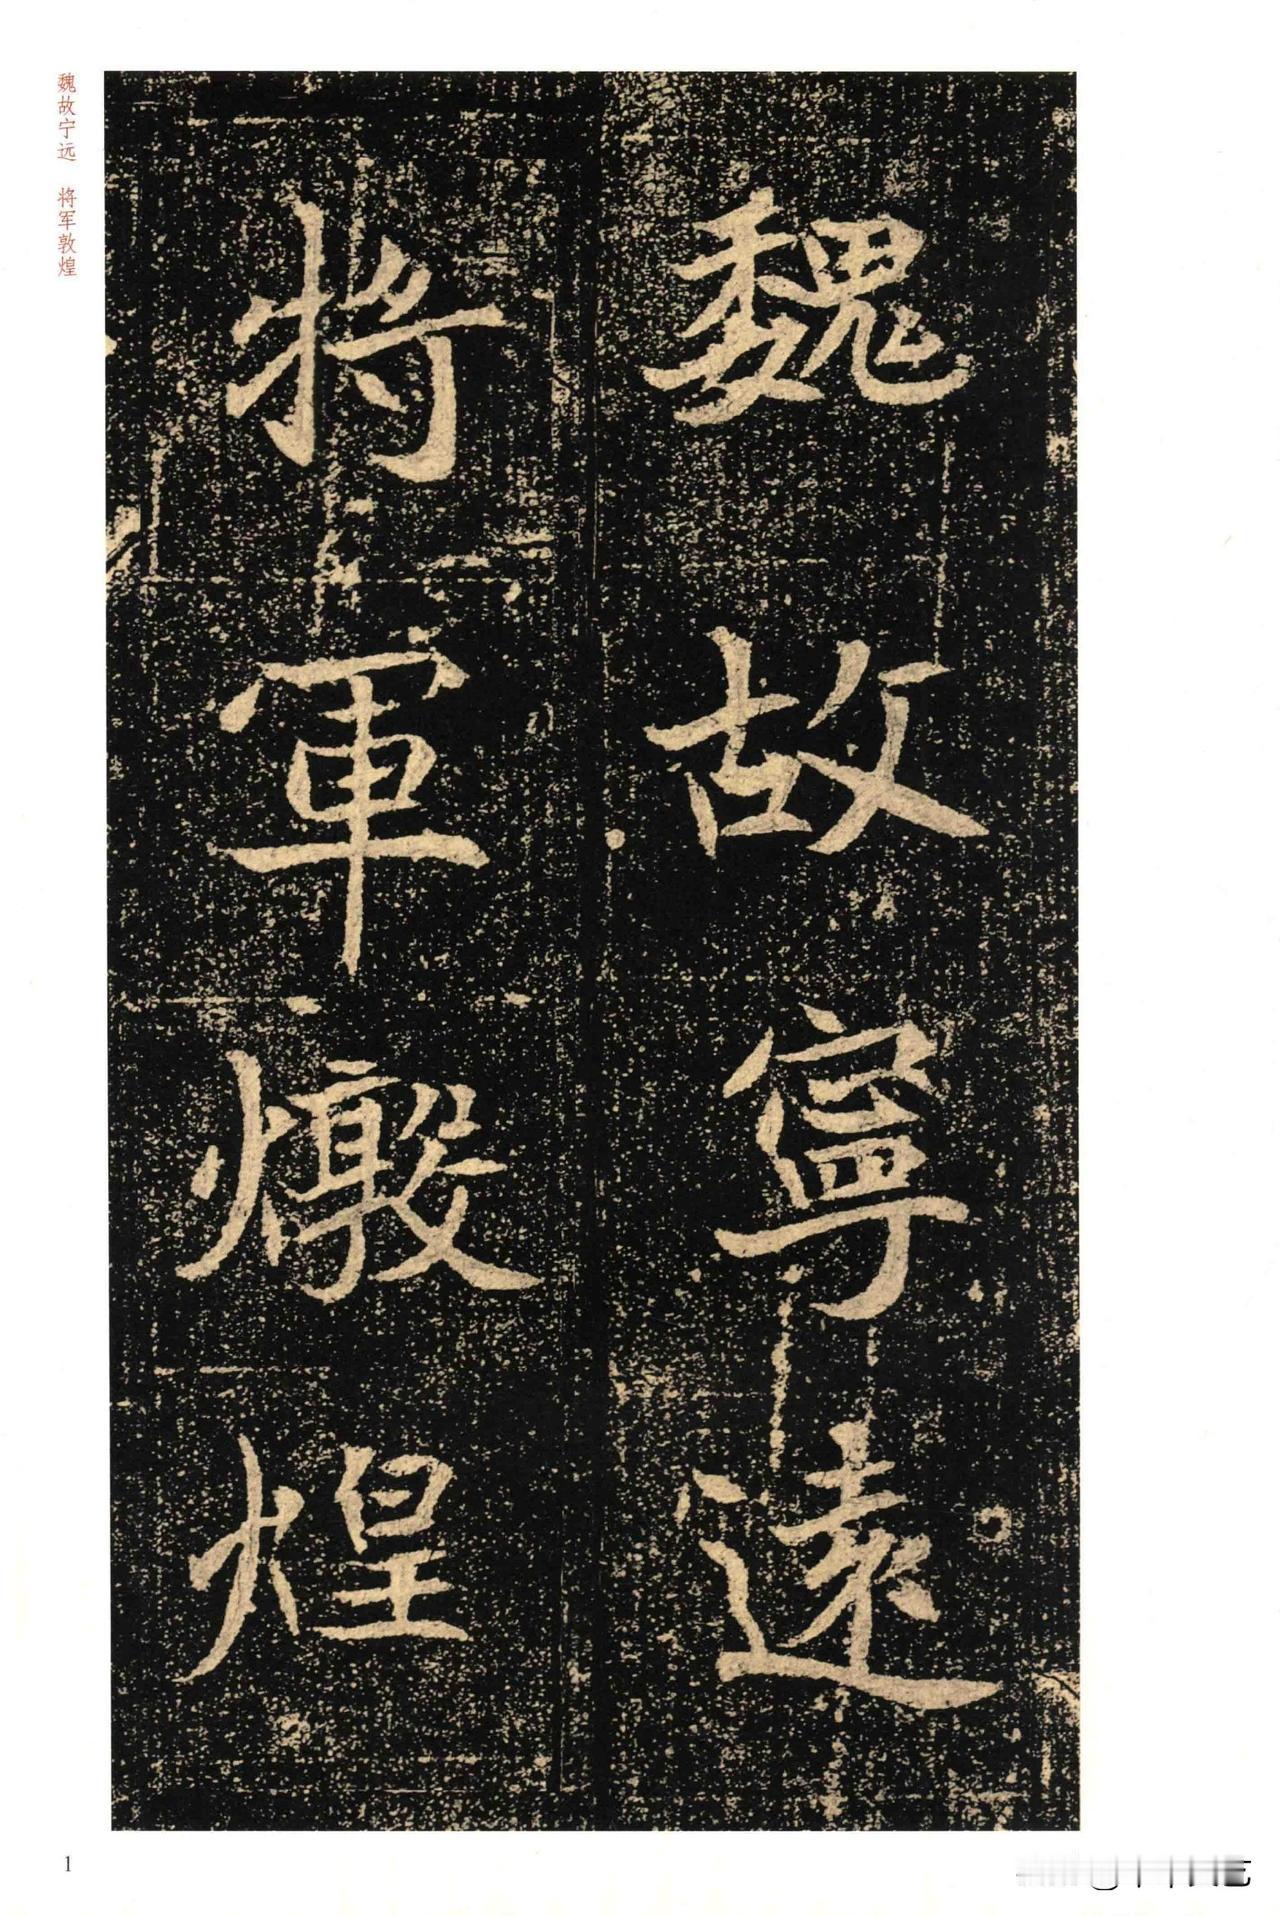 魏故寧遠
將軍燉煌
魏故宁远 将军敦煌
1